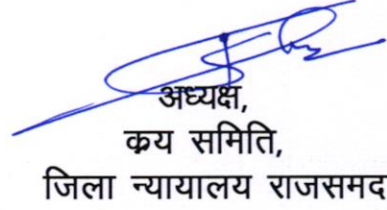 अध्यक्ष,
क्रय समिति,
जिला न्यायालय राजसमंद